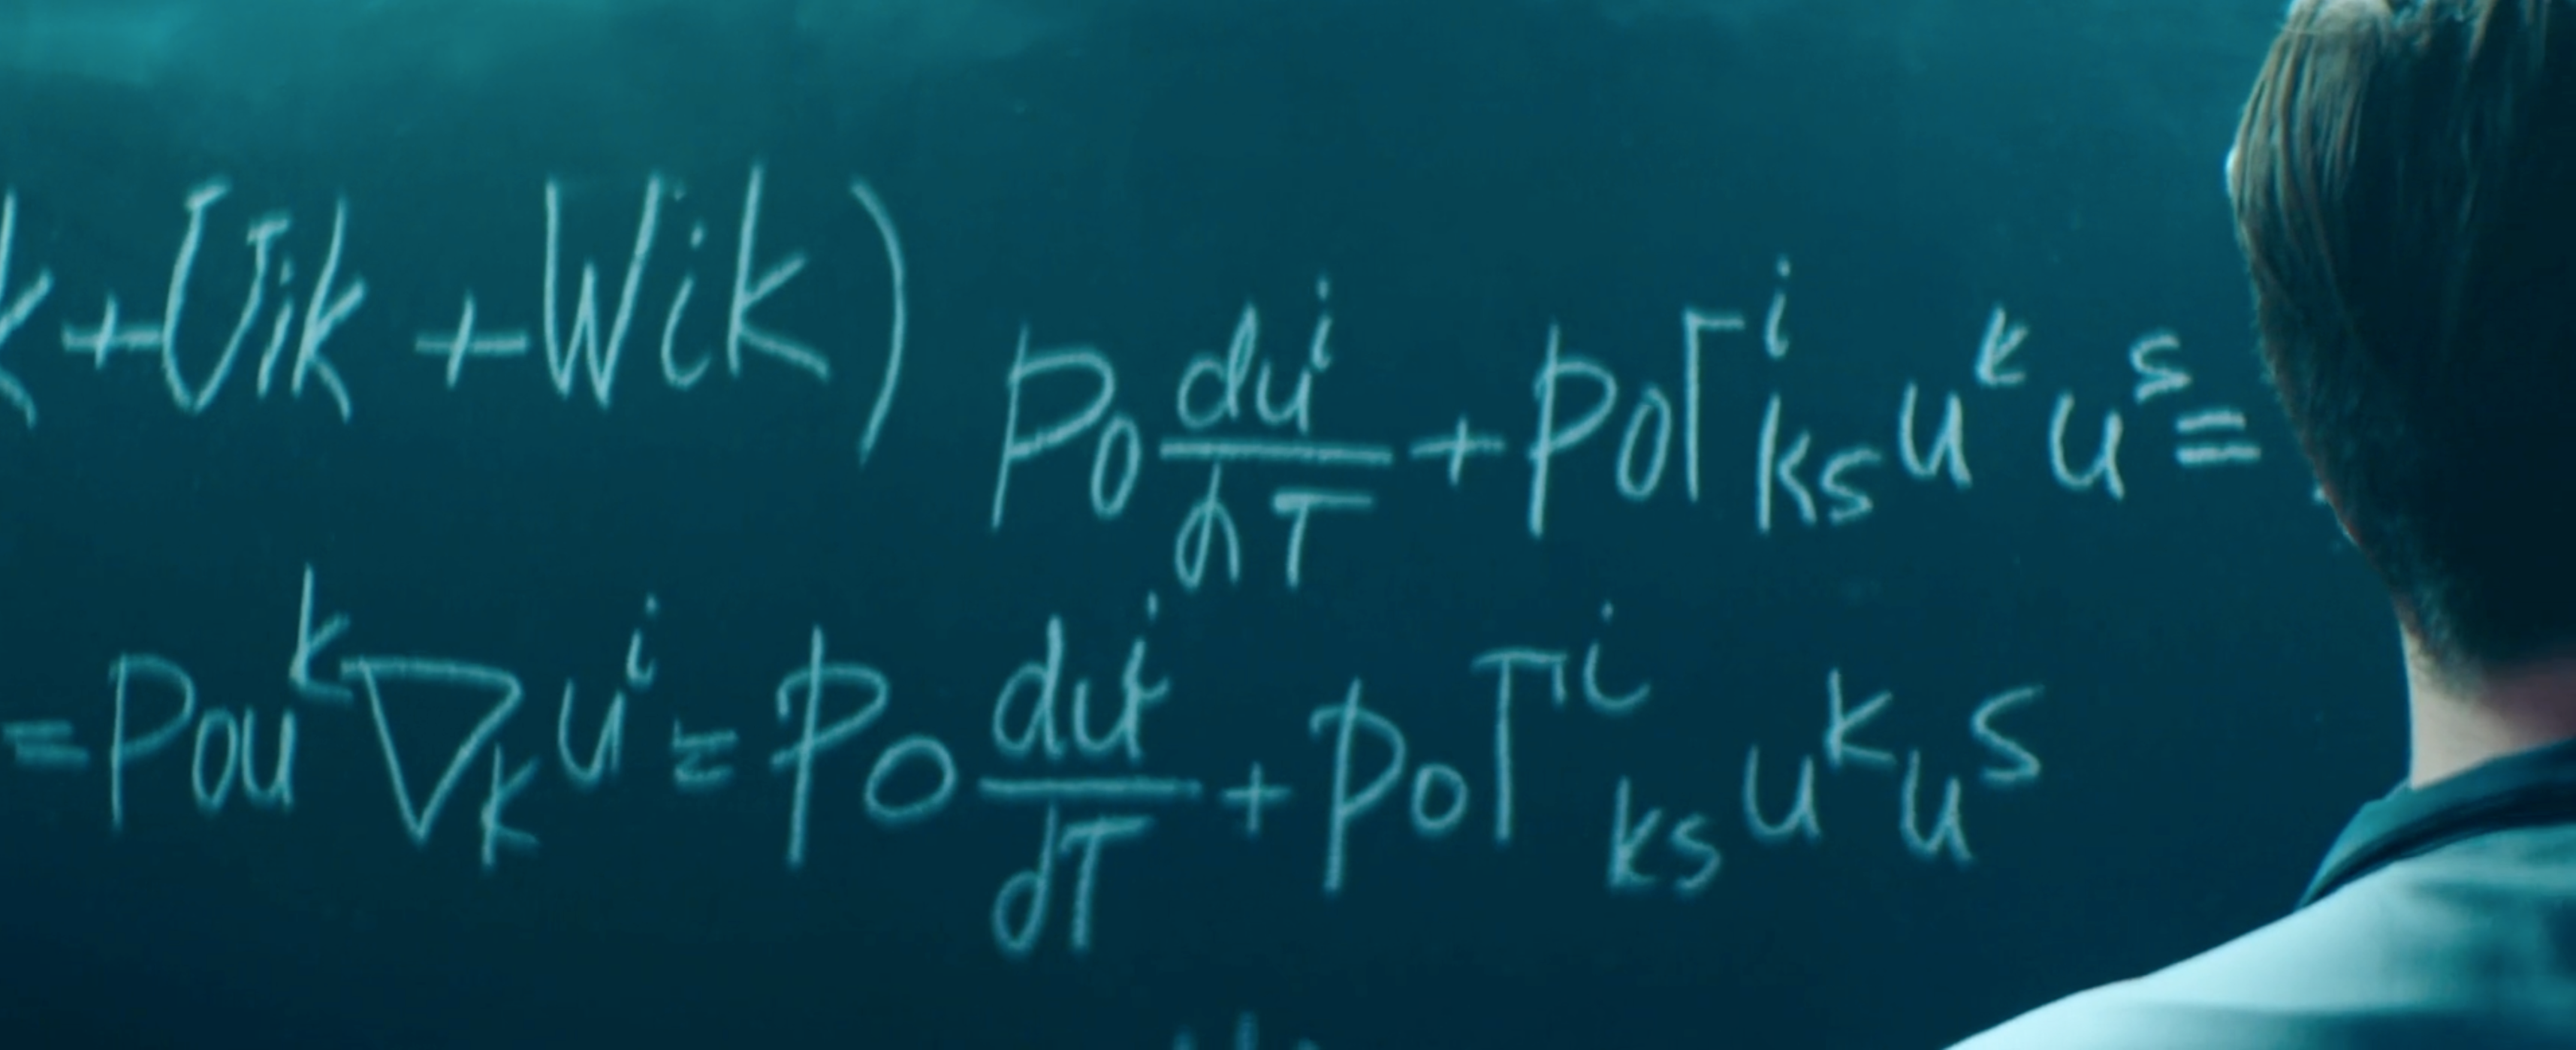 k + Uik + Wik) ρ₀ duⁱ/dτ + ρ₀Γⁱₖₛ uᵏ uˢ =
= ρ₀uᵏ∇ₖuⁱ = ρ₀ duⁱ/dτ + ρ₀Γⁱₖₛ uᵏuˢ